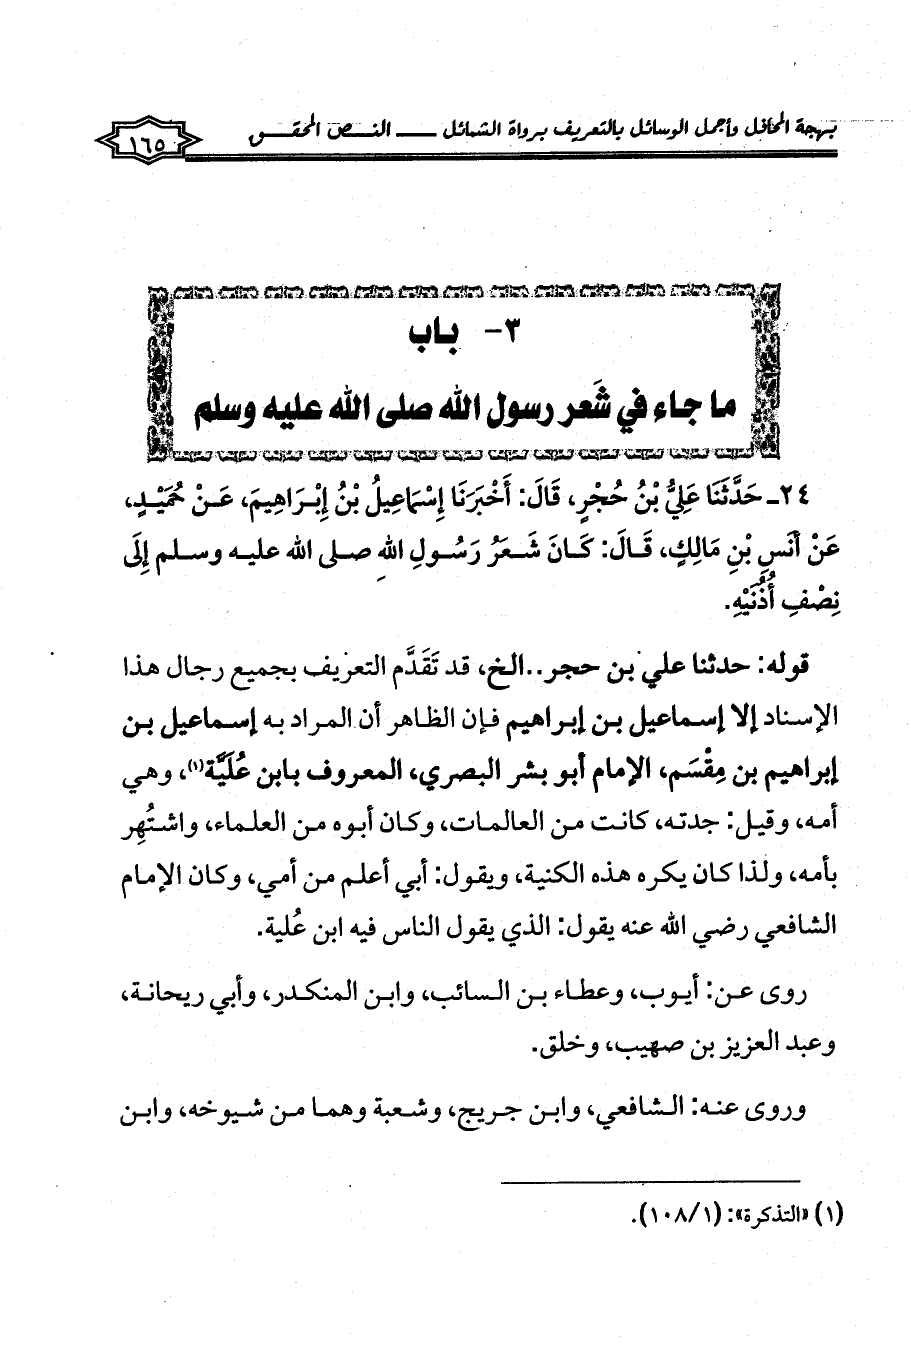 بهجة المحافل وأجمل الوسائل بالتعريف برواة الشمائل ــــ النـــص المحقـــق
١٦٥
٣- باب
ما جاء في شَعر رسول الله صلى الله عليه وسلم
٢٤ـ حَدَّثَنَا عَلِيُّ بْنُ حُجْرٍ، قَالَ: أَخْبَرَنَا إِسْمَاعِيلُ بْنُ إِبْرَاهِيمَ، عَنْ حُمَيْدٍ،
عَنْ أَنَسِ بْنِ مَالِكٍ، قَالَ: كَانَ شَعَرُ رَسُولِ اللهِ صلى الله عليه وسلم إِلَى
نِصْفِ أُذُنَيْهِ.
قوله: حدثنا علي بن حجر..الخ، قد تَقَدَّم التعريف بجميع رجال هذا
الإسناد إلا إسماعيل بن إبراهيم فإن الظاهر أن المراد به إسماعيل بن
إبراهيم بن مِقْسَم، الإمام أبو بشر البصري، المعروف بابن عُلَيَّة(١)، وهي
أمه، وقيل: جدته، كانت من العالمات، وكان أبوه من العلماء، واشتُهِر
بأمه، ولذا كان يكره هذه الكنية، ويقول: أبي أعلم من أمي، وكان الإمام
الشافعي رضي الله عنه يقول: الذي يقول الناس فيه ابن عُلية.
روى عن: أيوب، وعطاء بن السائب، وابن المنكدر، وأبي ريحانة،
وعبد العزيز بن صهيب، وخلق.
وروى عنه: الشافعي، وابن جريج، وشعبة وهما من شيوخه، وابن
(١) «التذكرة»: (١٠٨/١).